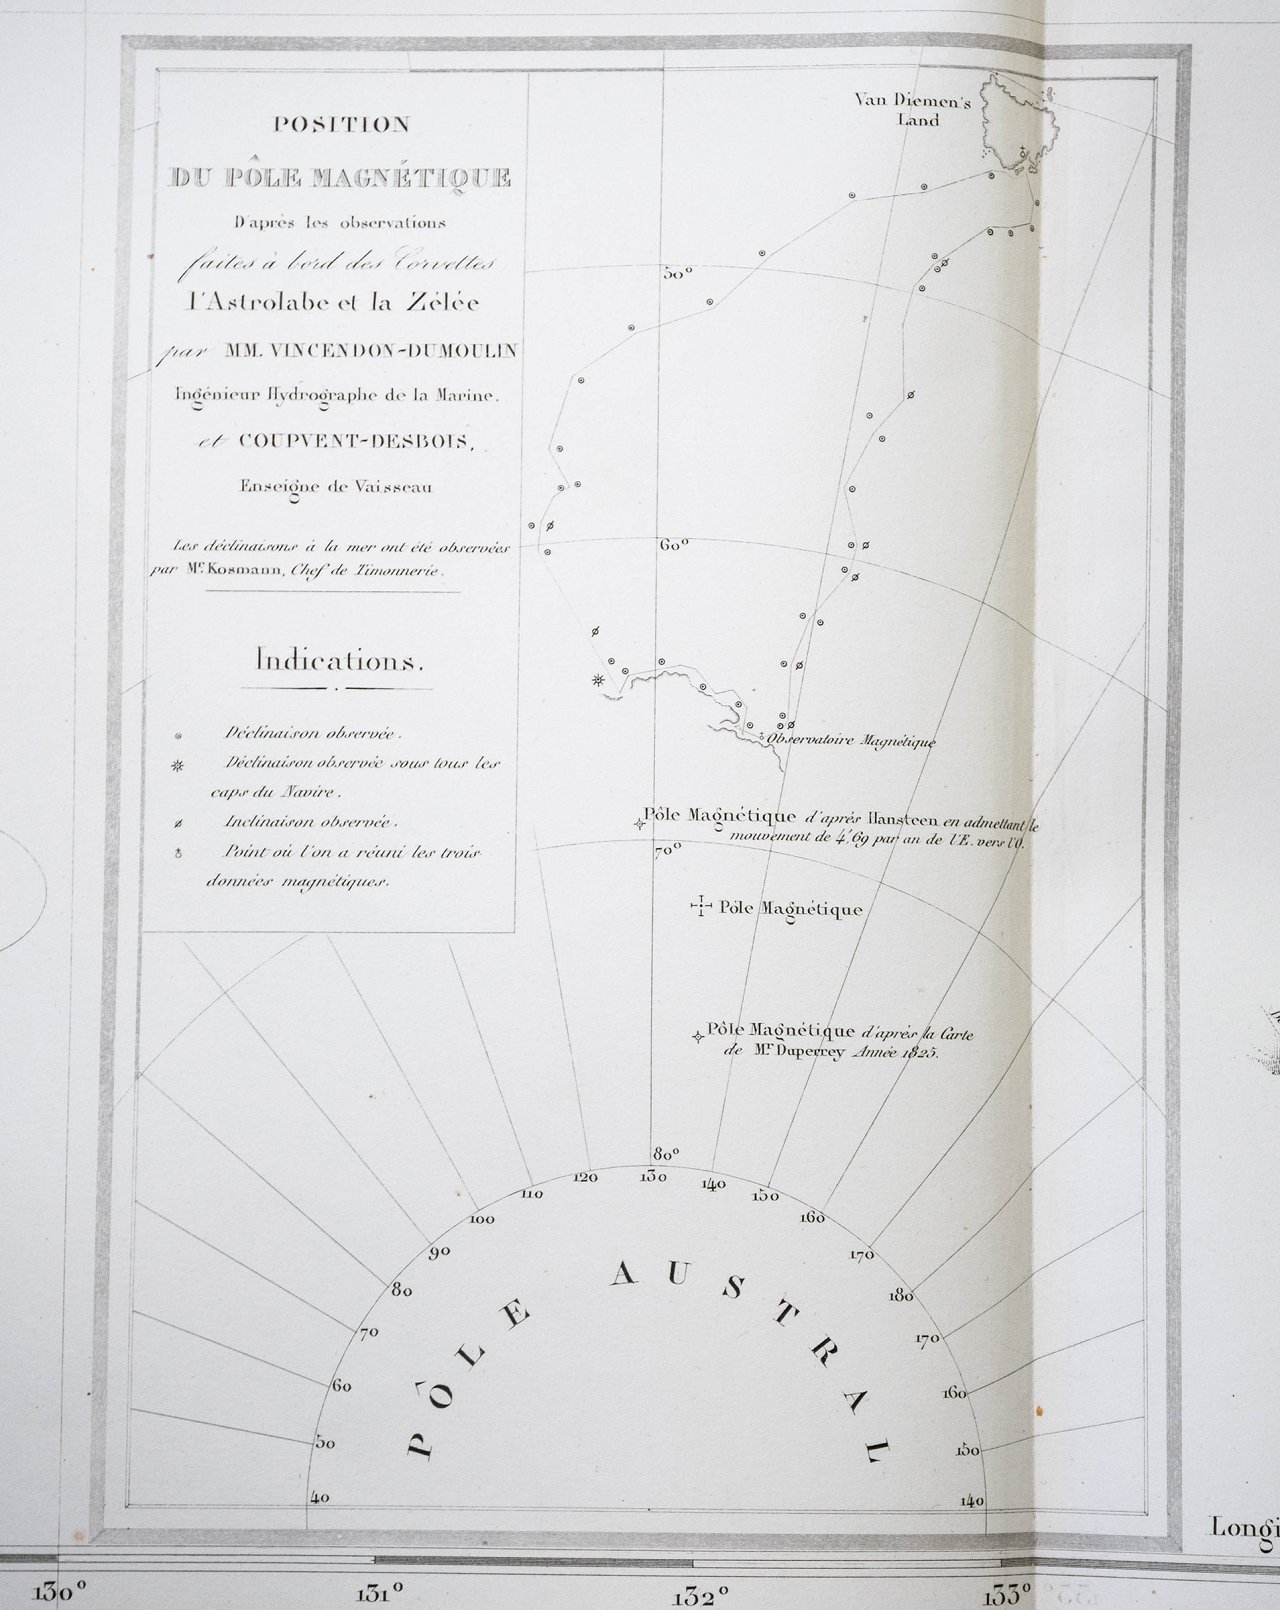 POSITION
DU PÔLE MAGNÉTIQUE
D'après les observations
faites à bord des Corvettes
l'Astrolabe et la Zélée
par MM. VINCENDON-DUMOULIN
Ingénieur Hydrographe de la Marine.
et COUPVENT-DESBOIS,
Enseigne de Vaisseau
Les déclinaisons à la mer ont été observées
par Mr. Kosmann, Chef de Timonnerie.
Indications.
Déclinaison observée.
Déclinaison observée sous tous les
caps du Navire.
Inclinaison observée.
Point où l'on a réuni les trois
données magnétiques.
Van Diemen's
Land
50°
60°
Observatoire Magnétique
Pôle Magnétique d'après Hansteen en admettant le
mouvement de 4',69 par an de l'E. vers l'O.
70°
Pôle Magnétique
Pôle Magnétique d'après la Carte
de Mr. Duperrey Année 1825.
80°
40
50
60
70
80
90
100
110
120
130
140
150
160
170
180
170
160
150
140
PÔLE AUSTRAL
Longi
130°
131°
132°
133°